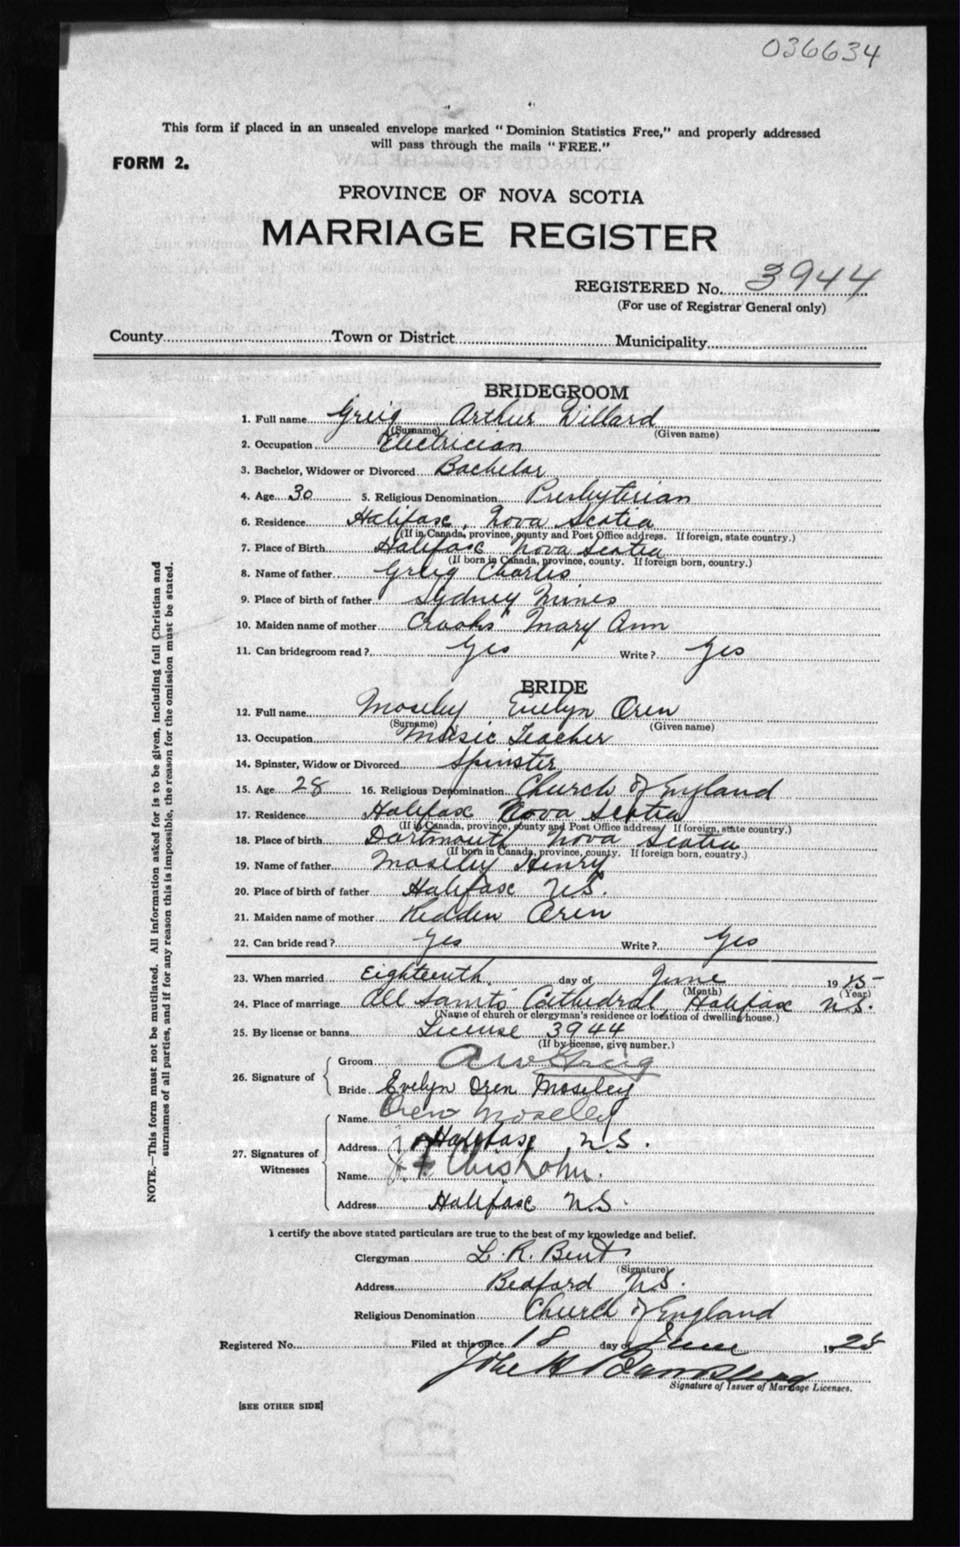 036634
This form if placed in an unsealed envelope marked "Dominion Statistics Free," and properly addressed
will pass through the mails "FREE."
FORM 2.
PROVINCE OF NOVA SCOTIA
MARRIAGE REGISTER
REGISTERED No. 3944
(For use of Registrar General only)
County Town or District Municipality
BRIDEGROOM
1. Full name Greig Arthur Dillard
(Surname) (Given name)
2. Occupation Electrician
3. Bachelor, Widower or Divorced Bachelor
4. Age 30 5. Religious Denomination Presbyterian
6. Residence Halifax, Nova Scotia
(If in Canada, province, county and Post Office address. If foreign, state country.)
7. Place of Birth Halifax Nova Scotia
(If born in Canada, province, county. If foreign born, country.)
8. Name of father Greig Charles
9. Place of birth of father Sydney Mines
10. Maiden name of mother Crooks Mary Ann
11. Can bridegroom read? Yes Write? Yes
BRIDE
12. Full name Moseley Evelyn Oren
(Surname) (Given name)
13. Occupation Music Teacher
14. Spinster, Widow or Divorced Spinster
15. Age 28 16. Religious Denomination Church of England
17. Residence Halifax Nova Scotia
(If in Canada, province, county and Post Office address. If foreign, state country.)
18. Place of birth Dartmouth Nova Scotia
(If born in Canada, province, county. If foreign born, country.)
19. Name of father Moseley Henry
20. Place of birth of father Halifax N.S.
21. Maiden name of mother Redden Oren
22. Can bride read? Yes Write? Yes
23. When married Eighteenth day of June 19
(Month) (Year)
24. Place of marriage All Saints Cathedral, Halifax N.S.
(Name of church or clergyman's residence or location of dwelling house.)
25. By license or banns License 3944
(If by license, give number.)
26. Signature of
Groom Greig
Bride Evelyn Oren Moseley
27. Signatures of Witnesses
Name Oren Moseley
Address Halifax N.S.
Name Chisholm.
Address Halifax N.S.
I certify the above stated particulars are true to the best of my knowledge and belief.
Clergyman L. R. Bent
(Signature)
Address Bedford N.S.
Religious Denomination Church of England
Registered No. Filed at this office 18 day of June 1925
Signature of Issuer of Marriage Licenses.
[SEE OTHER SIDE]
NOTE.—This form must not be mutilated. All information asked for is to be given, including full Christian and
surnames of all parties, and if for any reason this is impossible, the reason for the omission must be stated.